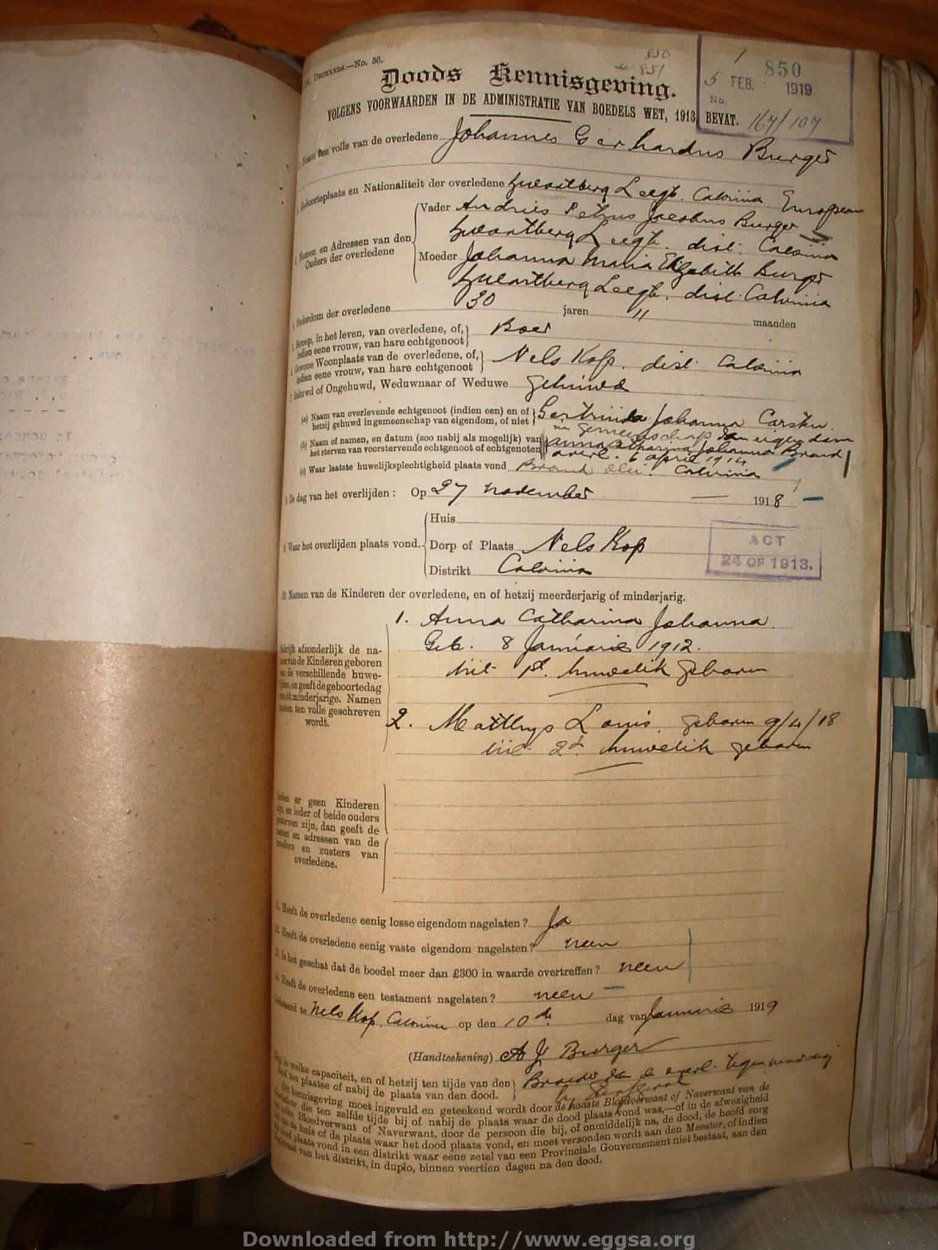 No. 56.
850
851
Doods Kennisgeving.
VOLGENS VOORWAARDEN IN DE ADMINISTRATIE VAN BOEDELS WET, 1913 BEVAT.
1
850
5 FEB. 1919
No.
167/107
volle van de overledene Johannes Gerhardus Burger
Geboorteplaats en Nationaliteit der overledene Zwaartberg Leegte Calvinia European
Namen en Adressen van den Ouders der overledene
Vader Andries Petrus Jacobus Burger
Zwaartberg Leegte. dist. Calvinia
Moeder Johanna Maria Elizabeth Burger
Zwaartberg Leegte. dist. Calvinia
Ouderdom der overledene 30 jaren 11 maanden
Beroep, in het leven, van overledene, of,
indien eene vrouw, van hare echtgenoot
Boer
Gewone Woonplaats van de overledene, of,
indien eene vrouw, van hare echtgenoot
Nels Kop. dist. Calvinia
Gehuwd of Ongehuwd, Weduwnaar of Weduwe gehuwd
(a) Naam van overlevende echtgenoot (indien een) en of
hetzij gehuwd in gemeenschap van eigendom, of niet
Gertruida Johanna Carsten
in gemeenschap van eigendom
(b) Naam of namen, en datum (zoo nabij als mogelijk) van
het sterven van voorstervende echtgenoot of echtgenooten
Anna Catharina Johanna Brand
overl. 6 April 1914
(c) Waar laatste huwelijksplechtigheid plaats vond Brand Calvinia
De dag van het overlijden: Op 27 November 1918
Waar het overlijden plaats vond.
Huis
Dorp of Plaats Nels Kop
Distrikt Calvinia
ACT
24 OF 1913.
10. Namen van de Kinderen der overledene, en of hetzij meerderjarig of minderjarig.
1. Anna Catharina Johanna.
Geb. 8 Januarie 1912.
uit 1st. huwelik geboren
afzonderlijk de na-
men van de Kinderen geboren
uit de verschillende huwe-
lijken, en geeft de geboortedag
van elk minderjarige. Namen
moeten ten volle geschreven
wordt.
2. Matthys Louis. geboren 9/4/18
uit 2de huwelik geboren
Indien er geen Kinderen
zijn, en ieder of beide ouders
gestorven zijn, dan geeft de
namen en adressen van de
broeders en zusters van
overledene.
Heeft de overledene eenig losse eigendom nagelaten? Ja
Heeft de overledene eenig vaste eigendom nagelaten? neen
Is het geschat dat de boedel meer dan £300 in waarde overtreffen? neen
Heeft de overledene een testament nagelaten? neen
te Nels Kop, Calvinia op den 10de dag van Januarie 1919
(Handteekening) A J Burger
in welke capaciteit, en of hetzij ten tijde van den
dood ten plaatse of nabij de plaats van den dood.
Broeder van de overl. tegenwoordig
by
De Kennisgeving moet ingevuld en geteekend wordt door de naaste Bloedverwant of Naverwant van de
die ten zelfde tijde bij of nabij de plaats waar de dood plaats vond was,—of in de afwezigheid
Bloedverwant of Naverwant, door de persoon die bij, of onmiddelijk na, de dood, de hoofd zorg
huis of de plaats waar het dood plaats vond, en moet verzonden wordt aan den Meester, of indien
plaats vond in een distrikt waar eene zetel van een Provinciale Gouvernement niet bestaat, aan den
van het distrikt, in duplo, binnen veertien dagen na den dood.
Downloaded from http://www.eggsa.org